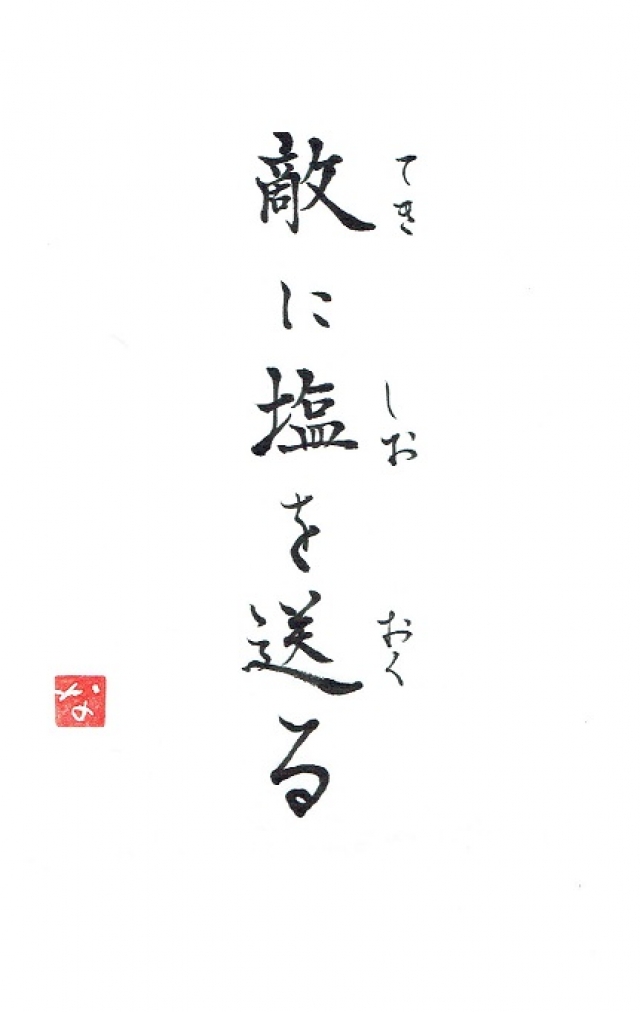 敵に塩を送る
てき
しお
おく